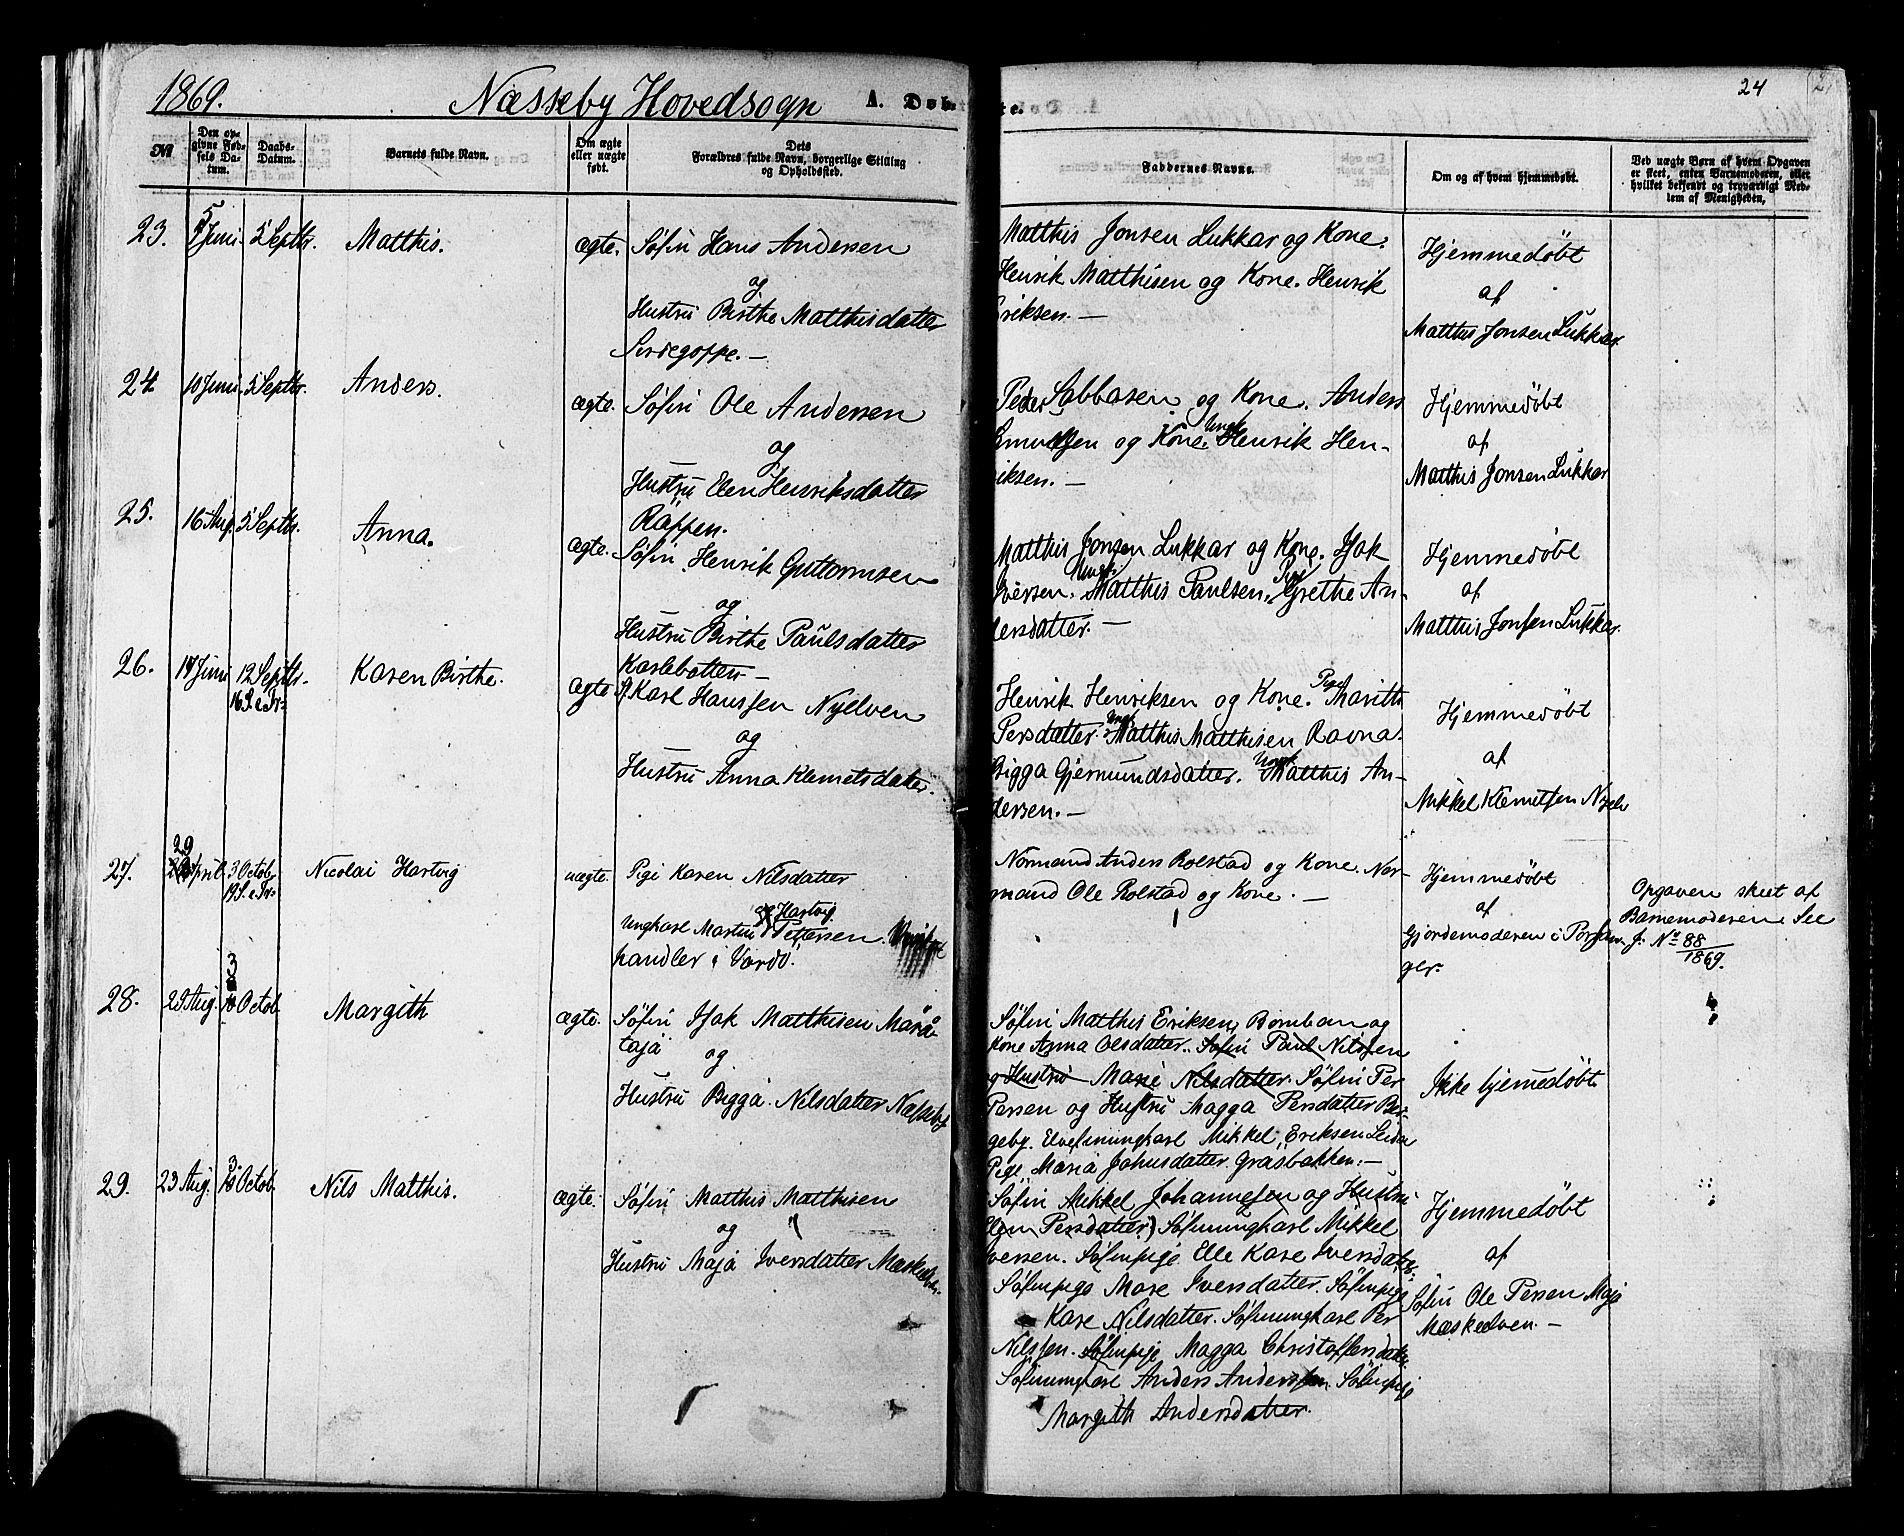 1869. Næsseby Hovedsogn A. Døbte. 24
№
Den opgivne Fødsels Datum.
Daabs-Datum.
Barnets fulde Navn.
Om ægte eller uægte født.
Dets Forældres fulde Navn, borgerlige Stilling og Opholdssted.
Faddernes Navne.
Om og af hvem hjemmedøbt.
Ved uægte Børn af hvem Opgaven er skeet, enten Barnemoderen, eller hvilket bekjendt og troværdigt Medlem af Menigheden.
23. 5 Juni 5 Septbr. Matthis. ægte. Søfin Hans Andersen
og
Hustru Birthe Matthisdatter
Matthis Jonsen Lukkar og Kone.
Henrik Matthisen og Kone. Henrik
Eriksen. —
Hjemmedøbt
af
Matthis Jonsen Lukkar.
24. 10 Juni 5 Septbr. Anders. ægte. Søfin Ole Andersen
og
Hustru Elen Henriksdatter
Räppen.
Peder Sabbasen og Kone. Anders
og Kone. Ungk. Henrik Hen-
riksen. —
Hjemmedøbt
af
Matthis Jonsen Lukkar
25. 16 Aug. 5 Septbr. Anna. ægte. Søfin Henrik Guttormsen
og
Hustru Birthe Paulsdatter
Karlebotten —
Matthis Jonsen Lukkar og Kone. Isak
Iversen. Ungk. Matthis Paulsen. Pige Grethe An-
dersdatter. —
Hjemmedøbt
af
Matthis Jonsen Lukkar.
26. 17 Juni 12 Septbr. Karen Birthe. ægte S. Karl Hanssen Nyelven
16 S. e Tr.
og
Hustru Anna Klemetsdatter.
Henrik Henriksen og Kone. Pige Marith
Persdatter. Ungk. Matthis Matthisen Ravna.
Bigga Gjermundsdatter. Ungk. Matthis An-
dersen. —
Hjemmedøbt
af
Mikkel Klemetsen Nyelv
27. 29 April 3 Octob. Nicolai Hartvig uægte. Pige Karen Nilsdatter
19 S. e Tr.
og Hartvig
Ungkarl Martin Pettersen.
handler i Vardö.
Normand Anders Rolstad og Kone. Nor-
mand Ole Rolstad og Kone. —
Hjemmedøbt
af
Gjordemoderen i Porsan-
ger.
Opgaven skeet af
Barnemoderen. See
J. No 88/1869.
28. 29 Aug. 3 Octob. Margith ægte. Søfin Isak Matthisen
og
Hustru Bigga Nilsdatter Næsseby
Søfin Matthis Eriksen, og
Kone Anna Olsdatter. Søfin Paul Nilssen
og Hustru Marie Nilsdatter. Søfin Per
Persen og Hustru Magga Persdatter Ber-
geby. Mikkel Eriksen
Pige Maria Johnsdatter Gräsbakken. —
Ikke hjemedøbt
29. 23 Aug. 3 Octob. Nils Matthis. ægte. Søfin Matthis Matthisen
og
Hustru Maja Iversdatter
Søfin Mikkel Johannesen og Hustru
Elen Persdatter.) Søfinungkarl Mikkel
Iversen. Søfinpige Elle Kare Iversdatter.
Søfinpige Mare Iversdatter. Søfinpige
Kare Nilsdatter. Søfinungkarl Per
Nilssen. Søfinpige Magga Christoffersdatter.
Søfinungkarl Anders Anderssen. Søfinpige
Margith Andersdatter.
Hjemmedøbt
af
Søfin Ole Persen Maja
Mæskelven. —